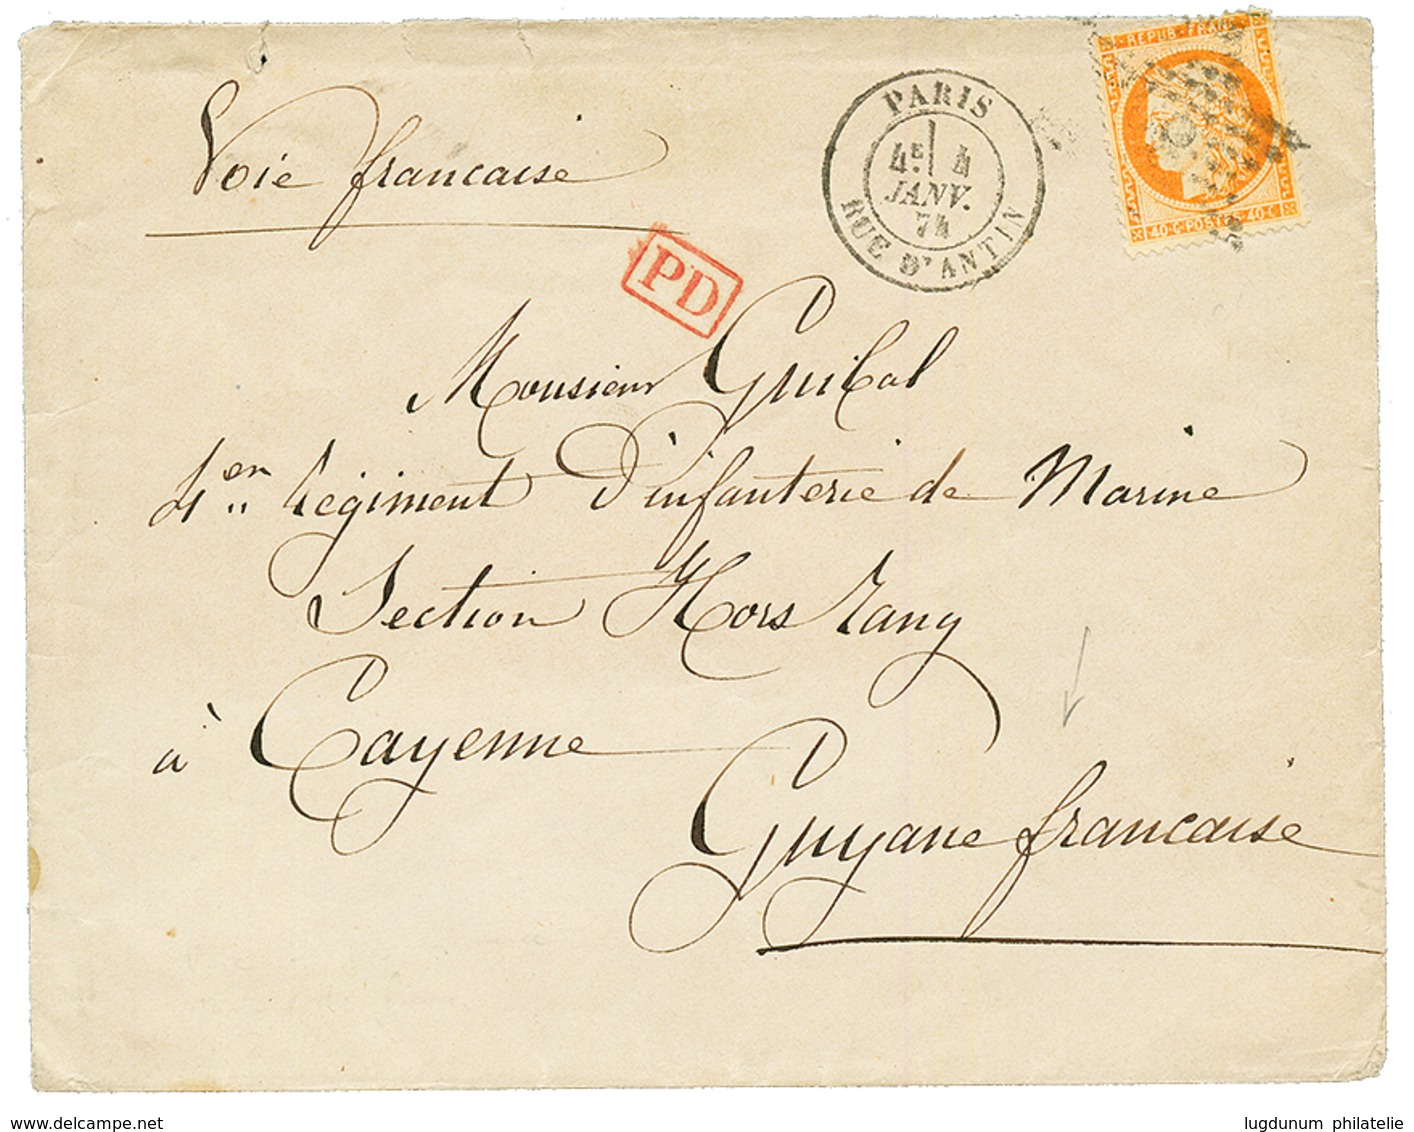 Voie francaise
PARIS
4E 4
JANV.
74
RUE D'ANTIN
REPUB FRANC
40 C POSTES 40 C
PD
Monsieur Guibal
4en Régiment D'infanterie de Marine
Section Hors rang
à Cayenne
Guyane francaise
www.delcampe.net
lugdunum philatelie